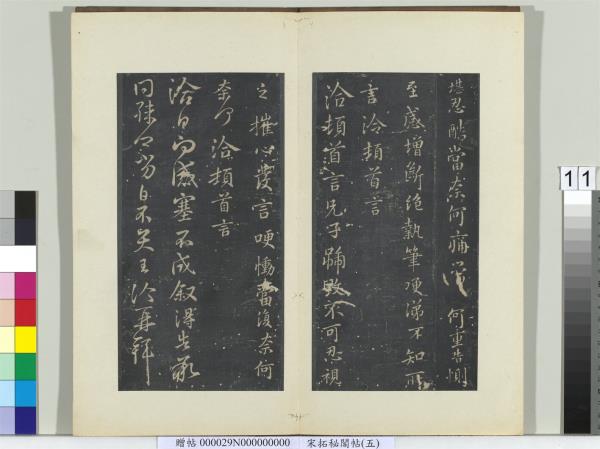 堪忍酷當奈何痛當何重告惻
至感增斷絕執筆哽涕不知所
言洽頓首言
洽頓首言兄子踊毀不可忍視
之摧心發言哽慟當復奈何
奈何洽頓首言
洽白向感塞不成叙得告
不具王洽再拜
11
贈帖 000029N000000000 宋拓秘閣帖(五)